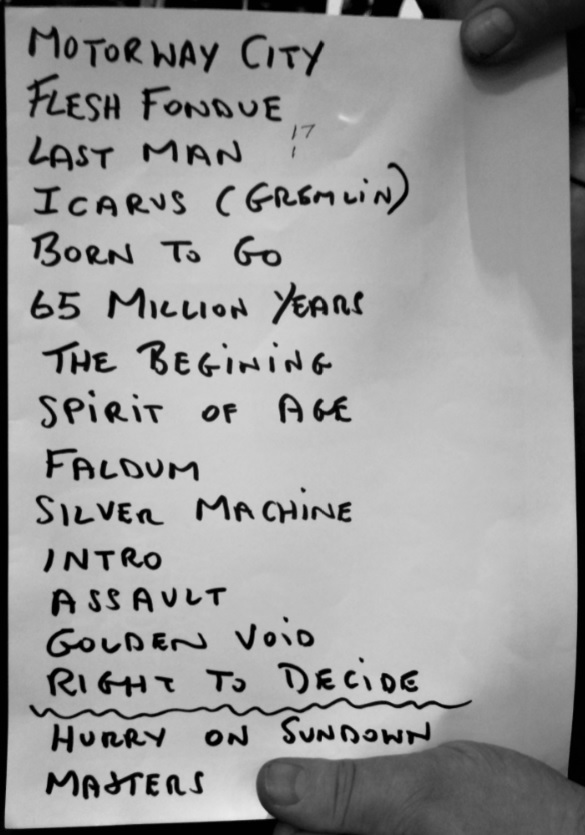 MOTORWAY CITY
FLESH FONDUE
17
1
LAST MAN
ICARUS (GREMLIN)
BORN TO GO
65 MILLION YEARS
THE BEGINING
SPIRIT OF AGE
FALDUM
SILVER MACHINE
INTRO
ASSAULT
GOLDEN VOID
RIGHT TO DECIDE
HURRY ON SUNDOWN
MASTERS